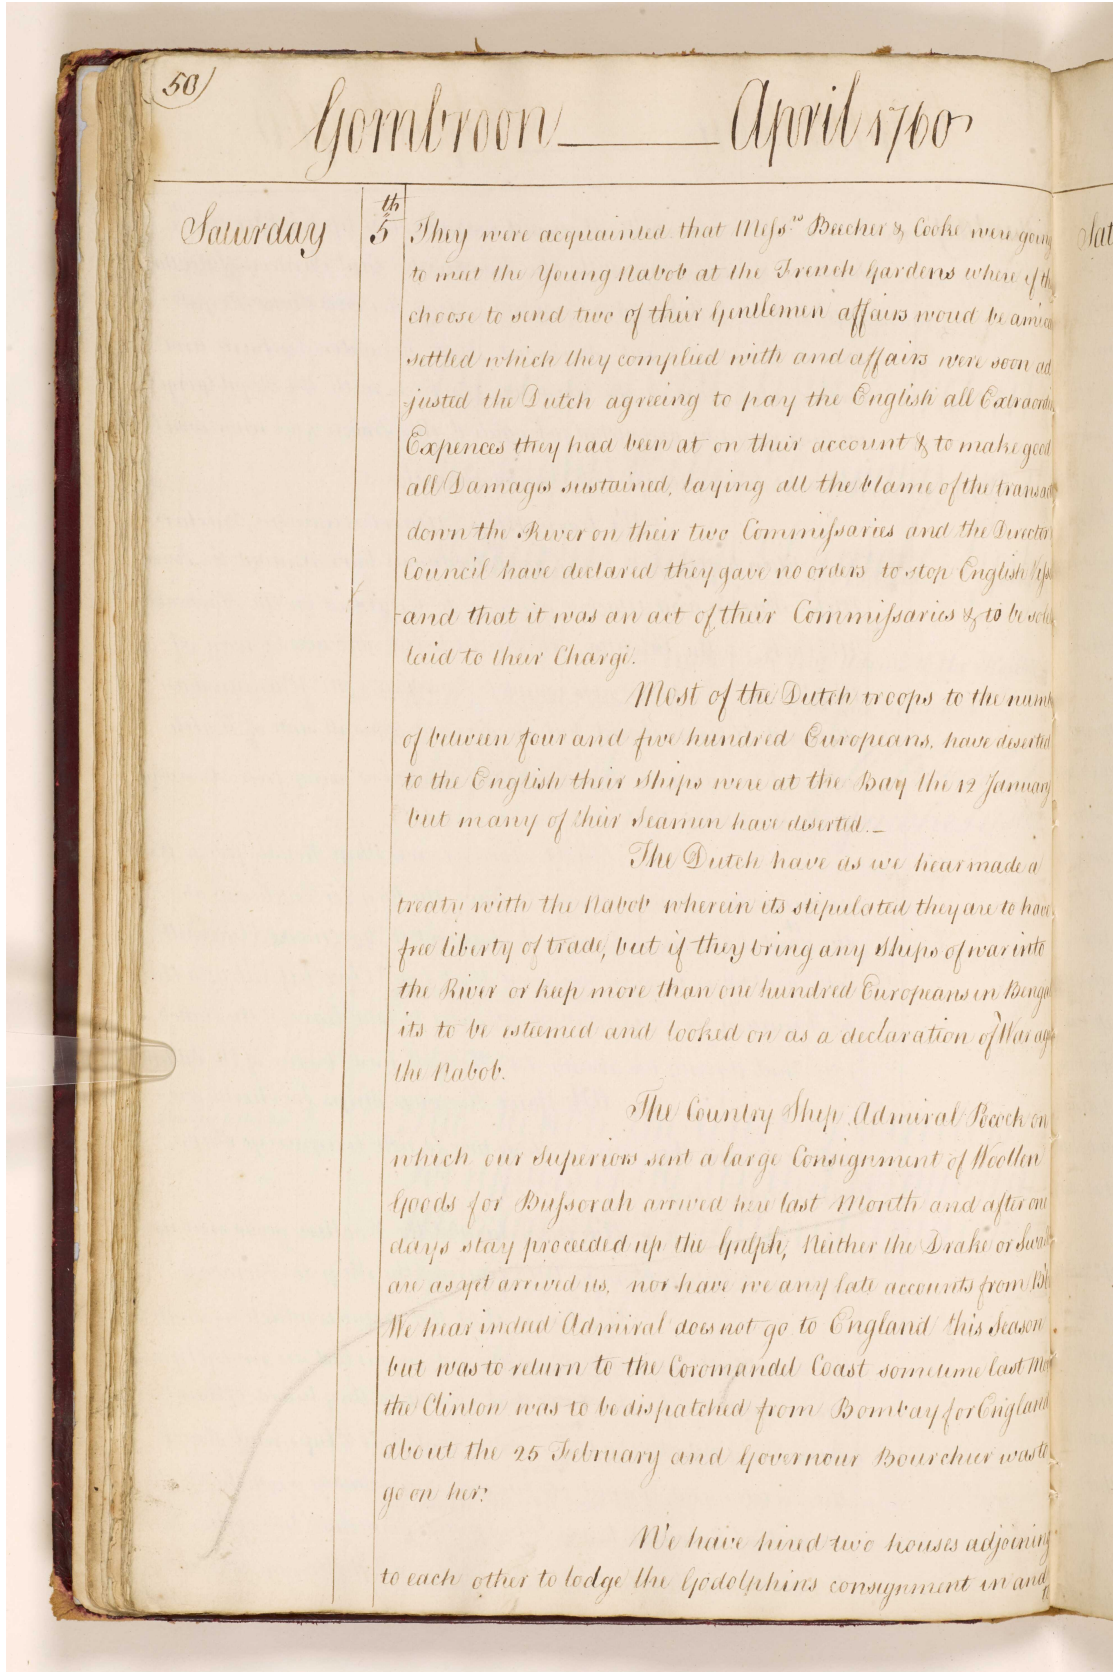 50
Gombroon April 1760
Saturday 5th They were acquainted that Messrs Beecher & Cooke were going
to meet the Young Nabob at the French Gardens where if they
choose to send two of their Gentlemen affairs woud be amica
settled which they complied with and affairs were soon ad
justed the Dutch agreeing to pay the English all Extraordin
Expences they had been at on their account & to make good
all Damages sustained, laying all the blame of the transac
down the River on their two Commissaries and the Director
Council have declared they gave no orders to stop English Vess
and that it was an act of their Commissaries & to be sole
laid to their Charge.
Most of the Dutch troops to the numb
of between four and five hundred Europeans, have deserted
to the English their Ships were at the Bay the 12 January
but many of their Seamen have deserted._
The Dutch have as we hear made a
treaty with the Nabob wherein its stipulated they are to have
free liberty of trade, but if they bring any Ships of war into
the River or keep more than one hundred Europeans in Bengal
its to be esteemed and looked on as a declaration of War aga
the Nabob.
The Country Ship Admiral Pocock on
which our Superiors sent a large Consignment of Woollen
Goods for Bussorah arrived here last Month and after one
days stay proceeded up the Gulph, Neither the Drake or Swall
are as yet arrived us, nor have we any late accounts from
We hear indeed Admiral does not go to England this Season
but was to return to the Coromandel Coast sometime last Mo
the Clinton was to be dispatched from Bombay for England
about the 25 February and Governour Bourchier was to
go on her.
We have hired two houses adjoining
to each other to lodge the Godolphins consignment in and
Sat